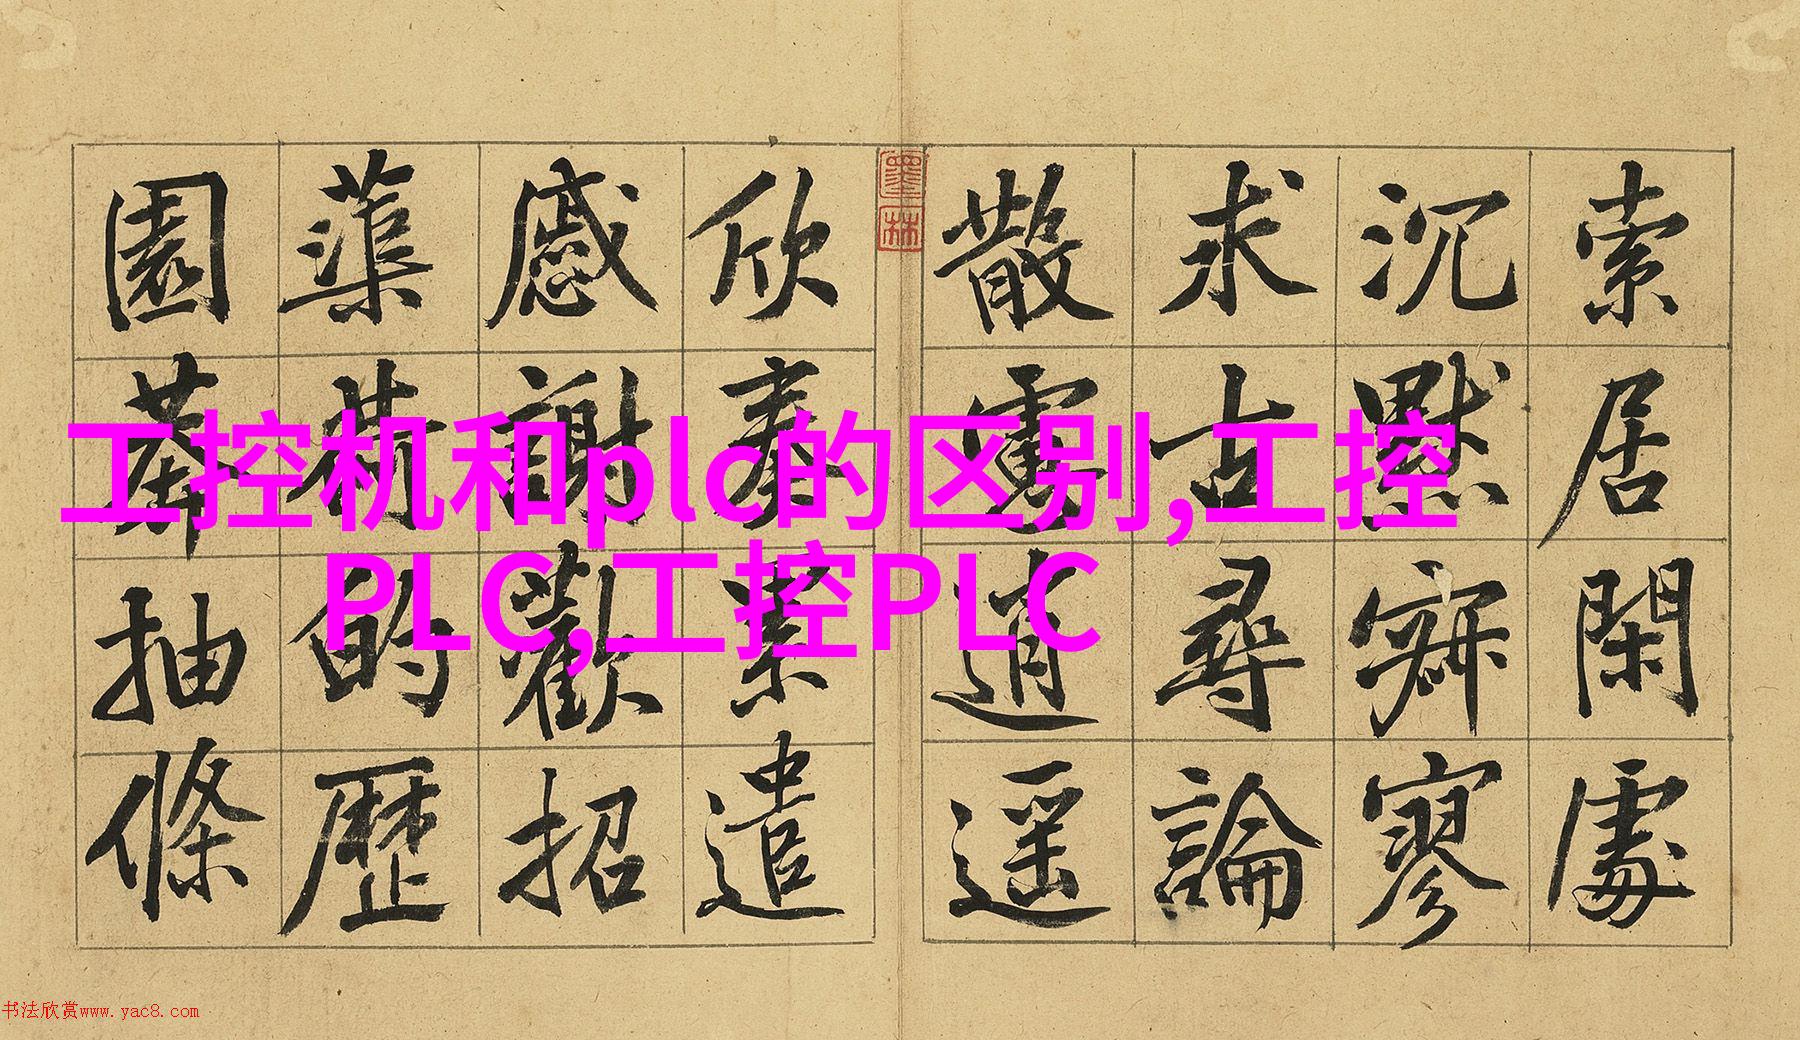 索居閑處
沉默寂寥
求古尋論
散慮逍遥
欣奏累遣
慼謝歡招
蕖荷的歷
園莽抽條
墨林
工控机和plc的区别,工控
PLC,工控PLC
书法欣赏www.yac8.com